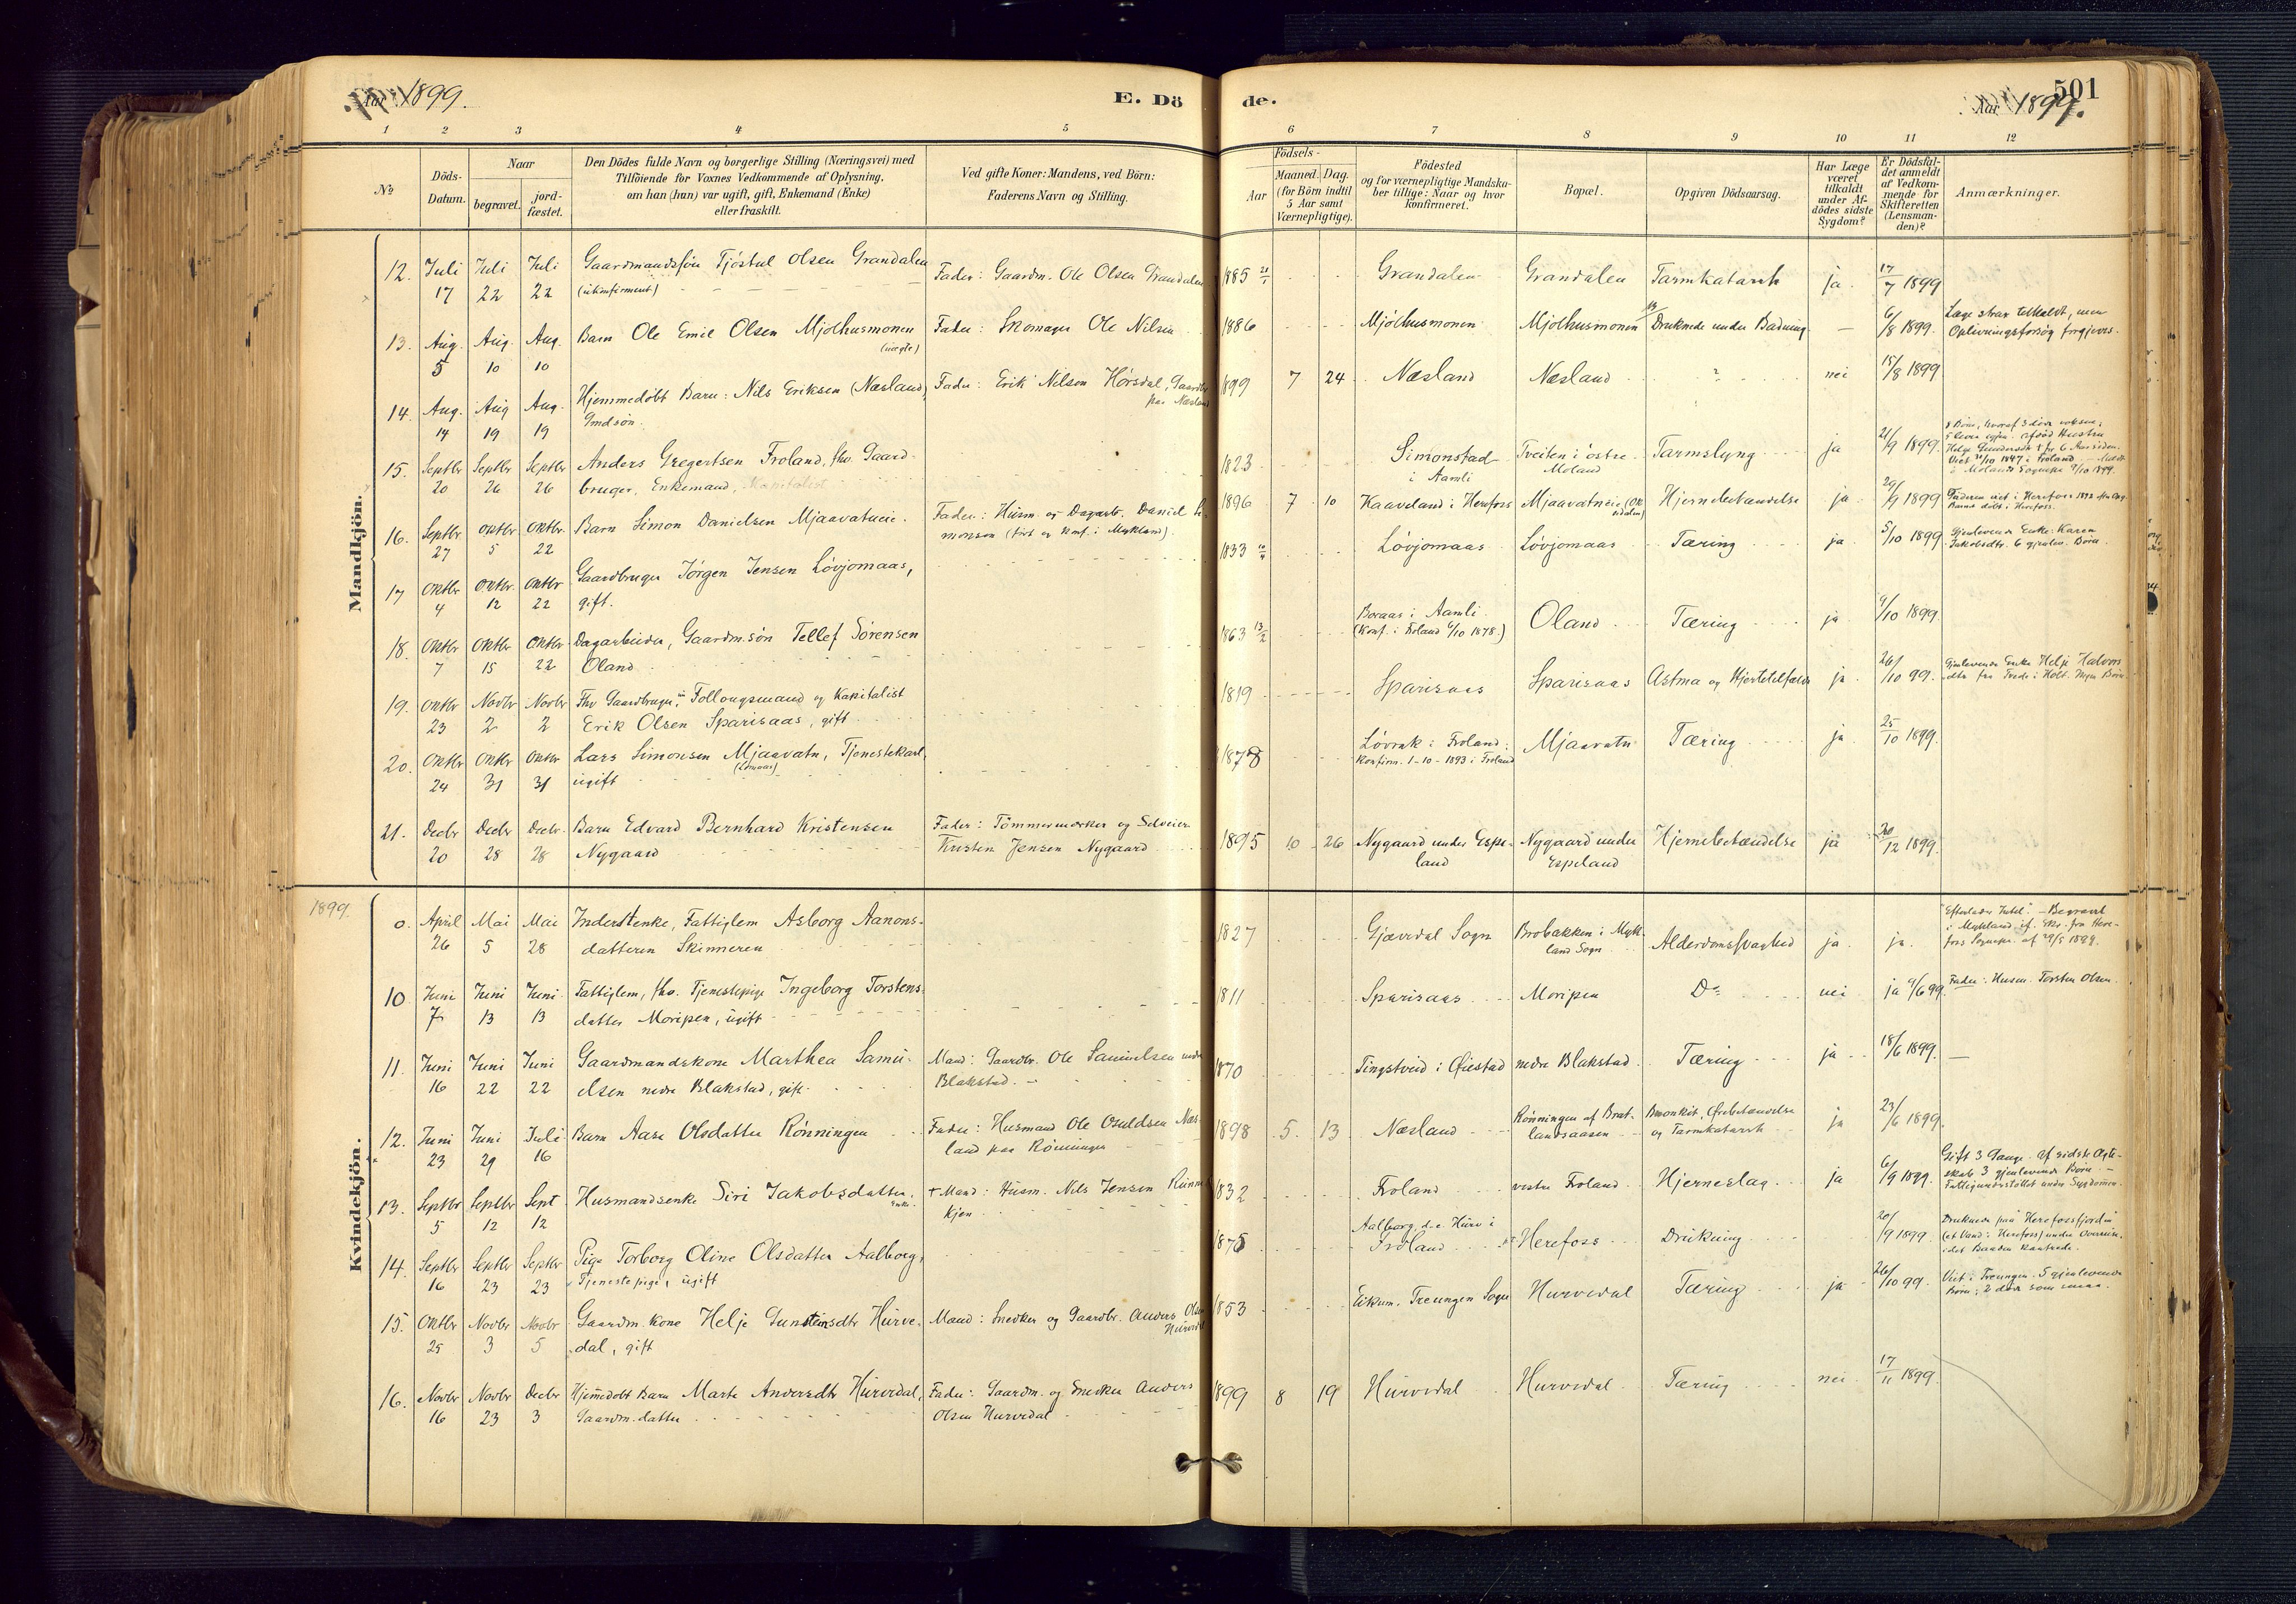 Aar 1899.
E. Döde.
501
Aar 1899.
1 2 3 4 5 6 7 8 9 10 11 12
No
Döds-Datum.
Naar
begravet.
jord-fæstet.
Den Dödes fulde Navn og borgerlige Stilling (Næringsvei) med
Tilföiende for Voxnes Vedkommende af Oplysning,
om han (hun) var ugift, gift, Enkemand (Enke)
eller fraskilt.
Ved gifte Koner: Mandens, ved Börn:
Faderens Navn og Stilling.
Födsels-
Aar
Maaned. Dag.
(for Börn indtil
5 Aar samt
Værnepligtige).
Födested
og for værnepligtige Mandska-
ber tillige: Naar og hvor
konfirmeret.
Bopæl.
Opgiven Dödsaarsag.
Har Læge
været
tilkaldt
under Af-
dödes sidste
Sygdom?
Er Dödsfal-
det anmeldt
af Vedkom-
mende for
Skifteretten
(Lensman-
den)?
Anmærkninger.
Mandkjön.
12. Juli 17 Juli 22 Juli 22 Gaardmandssøn Tjöstul Olsen Grandalen
(ukonfirmeret)
Fader: Gaardm. Ole Olsen Grandalen 1885 21/1 Grandalen Grandalen Tarmkatarrh ja 17/7 1899
13. Aug. 5 Aug. 10 Aug. 10 Barn Ole Emil Olsen Mjölhusmonen
(uægte)
Fader: Skomager Ole Nilsen 1886 Mjölhusmonen Mjölhusmonen Druknede under Badning — 6/8 1899.
Læge strax tilkaldt, men
Oplivningsforsøg forgjeves.
14. Aug. 14 Aug 19 Aug. 19 Hjemmedöbt Barn: Nils Eriksen (Næsland)
Gmdsön.
Fader: Erik Nilsen Hörsdal, Gaardbr
paa Næsland
1899 7 24 Næsland Næsland ? nei 15/8 1899
15. Septbr 20 Septbr 26 Septbr 26 Anders Gregertsen Froland, fhv. Gaard-
bruger, Enkemand, Kapitalist
1823 Simonstad
i Aamli
Tveiten i östre
Moland
Tarmslyng ja 21/9 1899.
8 Börn, hvoraf 3 döde voksne;
5 lever
Helje Gundersdtr † for 6 Aar siden.
Viet 1847 i Froland
16. Septbr. 27 Oktbr 5 Oktbr. 22 Barn Simon Danielsen Mjaavatneie.
Fader: Husm. og Dagarb. Daniel Si-
monsen (födt og konf. i Mykland)
1896 7 10 Kaaveland i Herefoss Mjaavatneie Hjernebetændelse ja 29/9 1899
Faderen viet i Herefoss 1892
Barnet döbt i Herefoss.
17 Oktbr 4 Oktbr. 12 Oktbr 22 Gaardbruger Jörgen Jensen Lövjomaas,
gift.
1833 Lövjomaas Lövjomaas Tæring ja 5/10 1899
Gjenlevende Enke: Karen
Jakobsdtr. 6 gjenlev. Börn.
18. Oktbr 7 Oktbr 15 Oktbr 22 Dagarbeider, Gaardm.sön Tellef Sörensen
Oland
1863 13/2 Boraas i Aamli
(Konf. i Froland 6/10 1878.)
Oland Tæring ja 9/10 1899.
19. Oktbr 23 Novbr 2 Novbr 2 Fhv Gaardbruger, Follougsmand og Kapitalist
Erik Olsen Sparisaas, gift
1819 Sparisaas Sparisaas Astma og Hjertetilfælde ja 26/10 99.
Gjenlevende Enke Helje Halvors-
dtr fra Trede i Holt. Ingen Börn
20. Oktbr 24 Oktbr 31 Oktbr 31 Lars Simonsen Mjaavatn, Tjenestekarl,
ugift
1878 Lövrak i Froland:
Konfirm. 1-10-1893 i Froland
Mjaavatn Tæring ja 25/10 1899.
21. Decbr 20 Decbr 28 Decbr. 28 Barn Edvard Bernhard Kristensen
Nygaard
Fader: Tömmermærker og Selveier
Kristen Jensen Nygaard
1895 10 26 Nygaard under Espe-
land
Nygaard under
Espeland
Hjernebetændelse ja 20/12 1899.
1899
Kvindekjön.
0. April 26 Mai 5 Mai 28 Inderstenke, Fattiglem Asborg Aanons-
datteren Skinneren
1827 Gjævedal Sogn Brobakken i Myk-
land Sogn
Alderdomssvaghed ja ja.
"Efterlader Intet". — Begravet
i Mykland if. Eko. fra Here-
fos Sognepr. af 29/5 1899.
10 Juni 7 Juni 13 Juni 13 Fattiglem, fhv. Tjenestepige Ingeborg Torstens-
datter Moripen, ugift
1811 Sparisaas Moripen Do nei ja 9/6 99. Fader: Husm. Torsten Olsen.
11. Juni 16 Juni 22 Juni 22 Gaardmandskone Marthea Samu-
elsen nedre Blakstad, gift
Mand: Gaardbr. Ole Samuelsen nedre
Blakstad. —
1870 Tingstveid i Öiestad nedre Blakstad Tæring ja 18/6 1899. —
12. Juni 23 Juni 29 Juli 16 Barn Aase Olsdatter Rönningen
Fader: Husmand Ole Osuldsen Næs-
land paa Rönningen
1898 5 13 Næsland Rönningen af Brat-
landsaasen
Bronkit, Ørebetændelse
og Tarmkatarrh
ja 23/6 1899.
13. Septbr 5 Septbr 12 Sept 12 Husmandsenke Siri Jakobsdatter,
Enke.
† Mand: Husm. Nils Jensen
kjen
1832 Froland vestre Froland Hjerneslag ja 6/9 1899.
Gift 3 Gange. Af sidste Ægte-
skab 3 gjenlevende Børn. —
Fattigunderstöttet under Sygdommen.
14. Septbr 16 Septbr 23 Septbr 23 Pige Torborg Oline Olsdatter Aalborg,
Tjenestepige, ugift
1875 Aalborg, d.e. Hurv i
Froland
Herefoss Drukning 20/9 1899
Druknede paa Herefossfjorden
(et Vand i Herefoss) under
idet Baaden kantrede.
15. Oktbr 25 Novbr 3 Novbr 5 Gaardm. kone Helje Gunsteinsdtr Hurve-
dal, gift
Mand: Snedker og Gaardbr. Anders Olsen
Hurvedal
1853 Eikum. Treungen Sogn Hurvedal Tæring ja 26/10 99.
Viet i Treungen. 5 gjenlevende
Börn; 2 döde som smaa.
16. Novbr 16 Novbr 23 Decbr 3 Hjemmedöbt Barn Marte Andersdtr Hurvedal,
Gaardm.datter
Fader: Gaardm. og Snedker Anders
Olsen Hurvedal
1899 8 19 Hurvedal Hurvedal Tæring nei 17/11 1899.